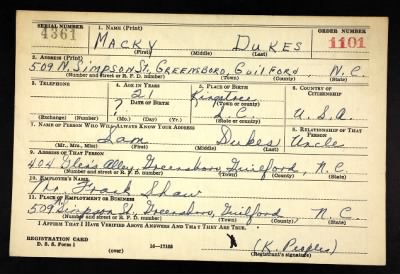 SERIAL NUMBER 1. NAME (Print) ORDER NUMBER
4361 MACKY DUKES 1101
(First) (Middle) (Last)
2. ADDRESS (Print)
509 N. SIMPSON ST. GREENSBORO, GUILFORD, N.C.
(Number and street or R. F. D. number) (Town) (County) (State)
3. TELEPHONE 4. AGE IN YEARS 5. PLACE OF BIRTH 6. COUNTRY OF CITIZENSHIP
21 Kingstree
DATE OF BIRTH (Town or county)
? S.C. U.S.A.
(Exchange) (Number) (Mo.) (Day) (Yr.) (State or country)
7. NAME OF PERSON WHO WILL ALWAYS KNOW YOUR ADDRESS 8. RELATIONSHIP OF THAT PERSON
Sam Dukes Uncle
(Mr., Mrs., Miss) (First) (Middle) (Last)
9. ADDRESS OF THAT PERSON
404 Allen, Greensboro, Guilford, N.C.
(Number and street or R. F. D. number) (Town) (County) (State)
10. EMPLOYER'S NAME
Mr. Frank Shaw
11. PLACE OF EMPLOYMENT OR BUSINESS
509 Simpson St, Greensboro, Guilford, N.C.
(Number and street or R. F. D. number) (Town) (County) (State)
I AFFIRM THAT I HAVE VERIFIED ABOVE ANSWERS AND THAT THEY ARE TRUE.
REGISTRATION CARD
D. S. S. Form 1 (over) 16-17105 X (K. Peoples)
(Registrant's signature)